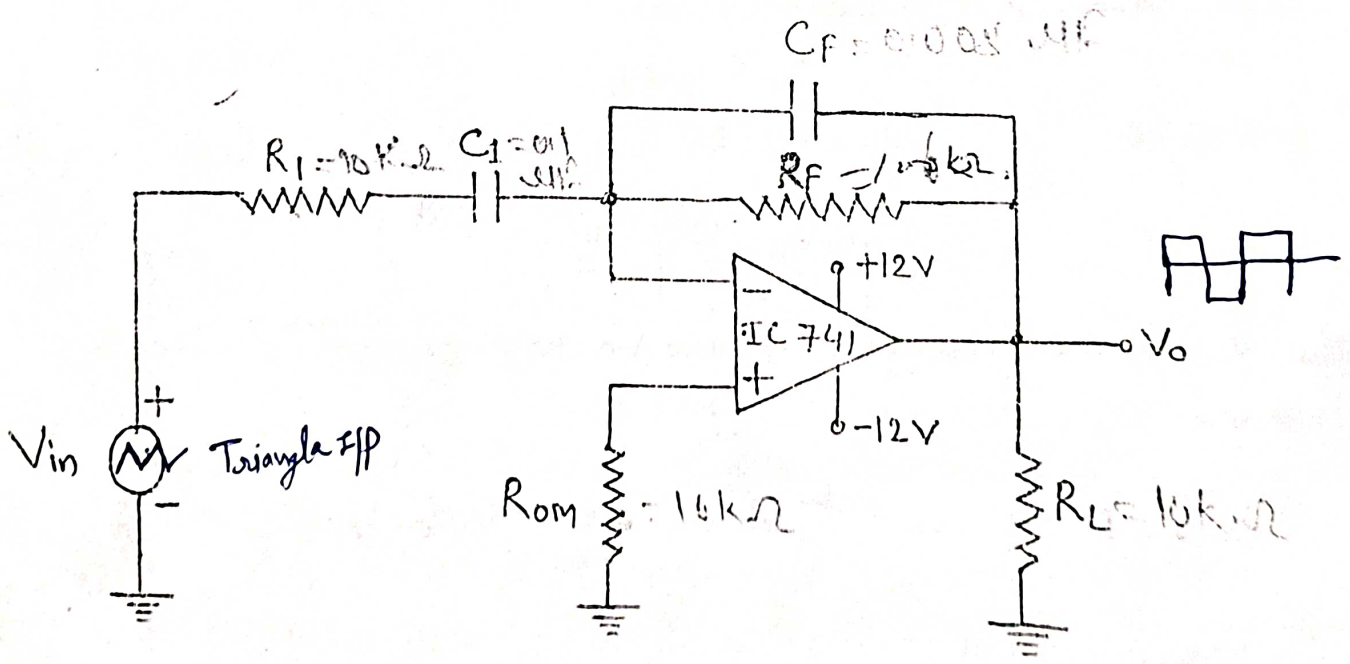 CF = 0.005 μF
R1 = 10 KΩ
C1 = 0.1
μF
RF = kΩ
+12V
−
IC 741
+
-12V
Vo
+
Vin
Triangla I/P
−
ROM = 10kΩ
RL = 10k Ω